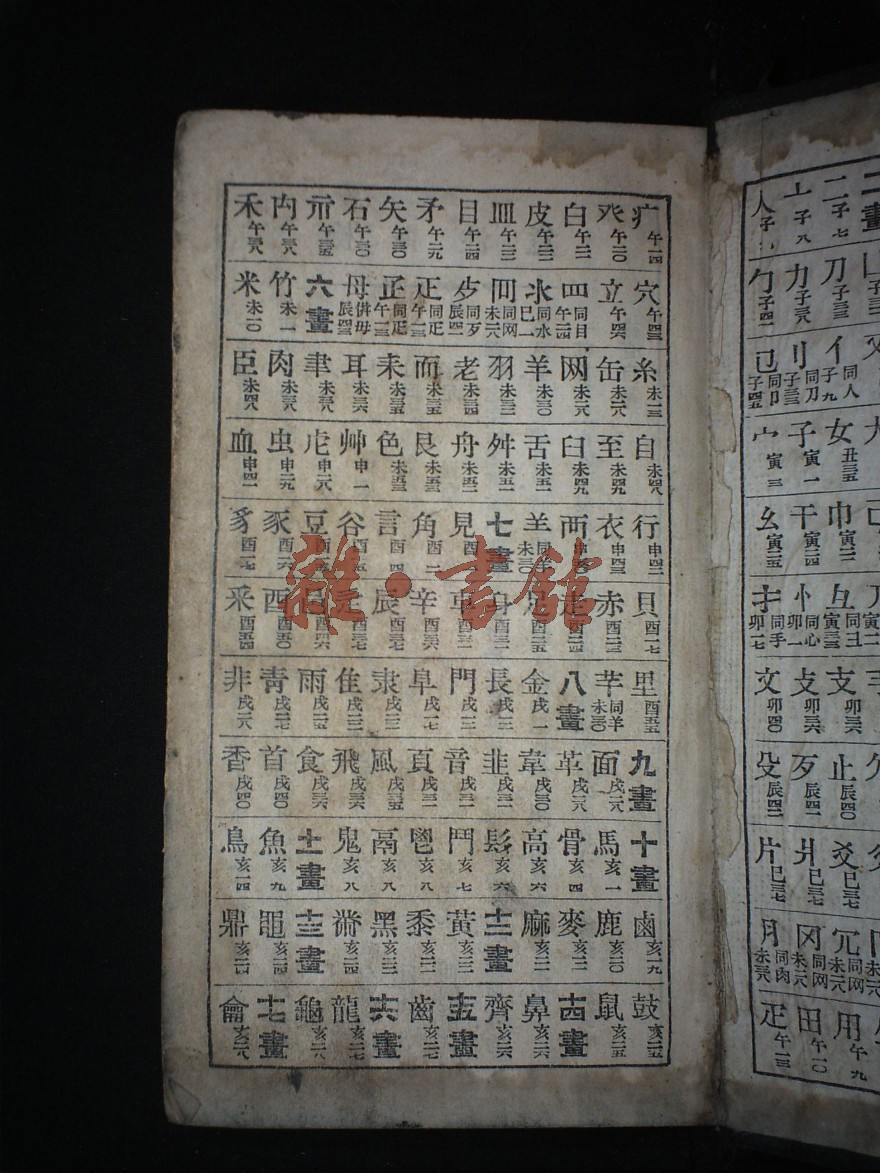 疒午一四 癶午二〇 白午二一 皮午二二 皿午二三 目午二四 矛午二九 矢午三〇 石午三〇 示午三五 禸午三八 禾午三八
穴午四三 立午四六 罒同目午二四 氺同水巳一 罓同网未二八 歺同歹辰四一 疋同疋午一三 母辰四三 六畫 竹未一 米未一〇
糸未一三 缶未二八 网未二八 羊未三〇 羽未三二 老未三四 而未三五 耒未三五 耳未三六 聿未三八 肉未三八 臣未四八
自未四八 至未四九 臼未四九 舌未五一 舛未五一 舟未五二 艮未五三 色未五三 艸申一 虍申二八 虫申二九 血申四一
行申四二 衣申四三 襾 羊同羊未三〇 七畫 見酉一 角酉二 言酉四 谷酉一五 豆酉一五 豕酉一六 豸酉一七
貝酉一七 赤酉二三 走酉二四 足酉二五 身 車 辛酉三六 辰酉三七 辵 邑 酉酉五〇 釆酉五四
里酉五五 芈同羊未三〇 八畫 金戌一 長戌一三 門戌一三 阜戌一七 隶戌二二 隹戌二二 雨戌二五 靑戌二七 非戌二八
九畫 面戌二八 革戌二八 韋戌三〇 韭戌三一 音戌三一 頁戌三二 風戌三五 飛戌三六 食戌三六 首戌四〇 香戌四〇
十畫 馬亥一 骨亥四 高亥六 髟亥六 鬥亥七 鬯亥八 鬲亥八 鬼亥八 十一畫 魚亥九 鳥亥一四
鹵亥一九 鹿亥二〇 麥亥二一 麻亥二二 十二畫 黃亥二二 黍亥二二 黑亥二三 黹亥二四 十三畫 黽亥二四 鼎亥二四
鼓亥二五 鼠亥二五 十四畫 鼻亥二六 齊亥二六 十五畫 齒亥二七 十六畫 龍亥二七 龜亥二八 十七畫 龠亥二八
二畫 二子七 亠子八 人子
刀子三三 力子三八 勹子四一
亻同人子九 刂同刀子三三 㔾同卩子四五
女丑三五 子寅一 宀寅三
巾寅二二 干寅二四 幺寅二五
彑同彐寅三三 忄同心卯一 扌同手卯一七
支卯三六 攴卯三六 文卯四〇
止辰四〇 歹辰四一 殳辰四二
爻巳三七 爿巳三七 片巳三七
冗同网未二八 冈同网未二八 月同肉未三八
用午九 田午一〇 疋午一三
雜·書館